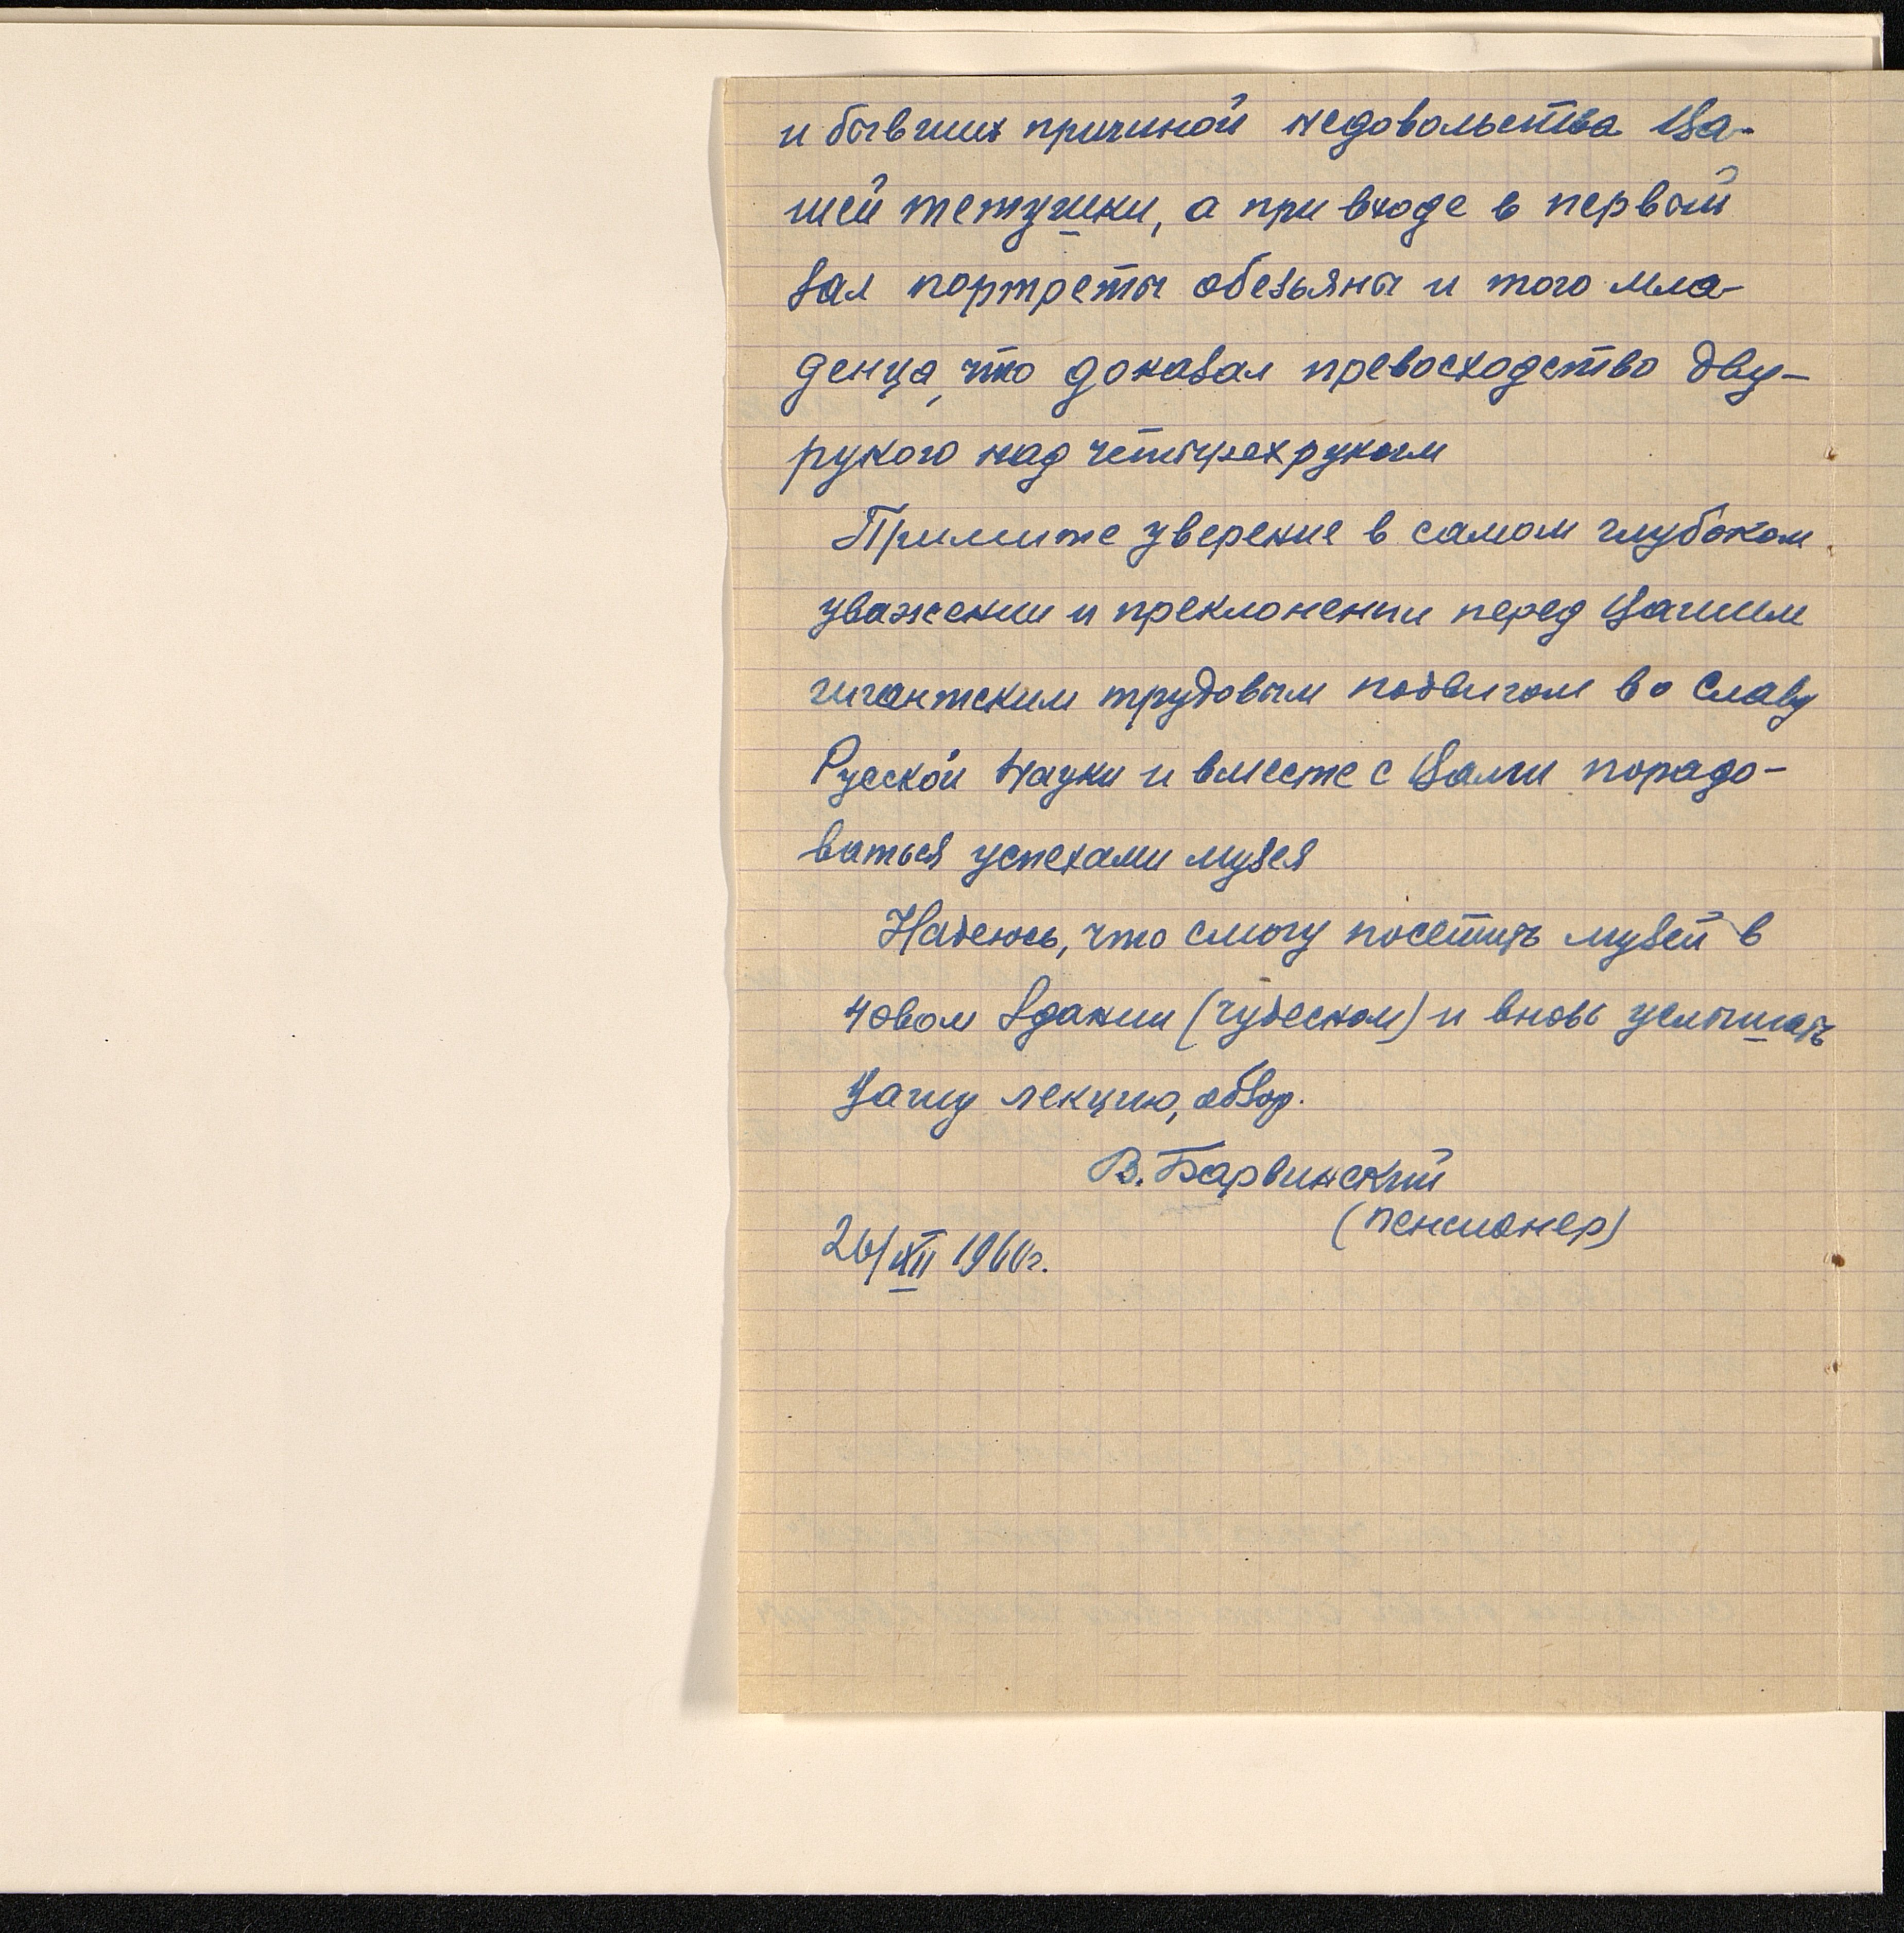 и бывших причиной недовольства Ва-
шей тетушки, а при входе в первый
зал портреты обезьяны и того мла-
денца, что доказал превосходство дву-
рукого над четырехруким
Примите уверение в самом глубоком
уважении и преклонении перед Вашим
гигантским трудовым подвигом во Славу
Русской Науки и вместе с Вами порадо-
ваться успехами музея
Надеюсь, что смогу посетить музей в
новом здании (чудесном) и вновь услышать
Вашу лекцию, обзор.
В. Барвинский
(пенсионер)
26/XII 1960г.